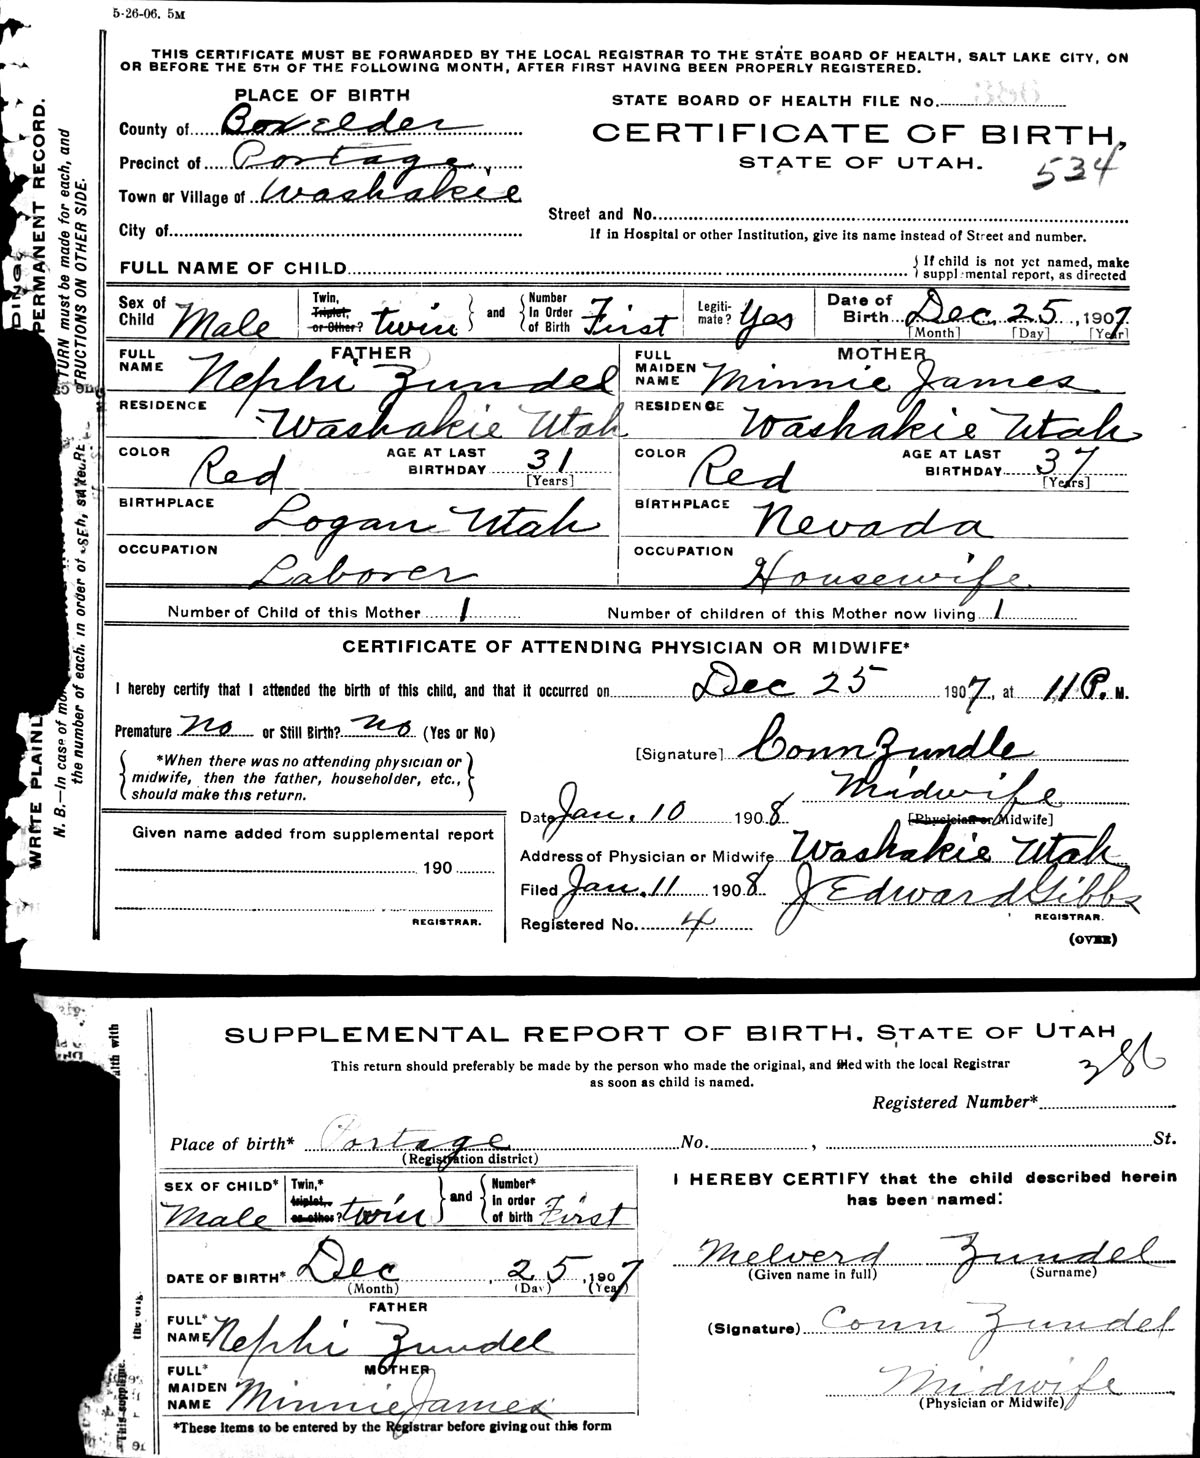 5-26-06. 5M
THIS CERTIFICATE MUST BE FORWARDED BY THE LOCAL REGISTRAR TO THE STATE BOARD OF HEALTH, SALT LAKE CITY, ON
OR BEFORE THE 5TH OF THE FOLLOWING MONTH, AFTER FIRST HAVING BEEN PROPERLY REGISTERED.
PLACE OF BIRTH
County of Boxelder
Precinct of Portage
Town or Village of Washakie
City of
STATE BOARD OF HEALTH FILE No.
CERTIFICATE OF BIRTH,
STATE OF UTAH.
534
Street and No.
If in Hospital or other Institution, give its name instead of Street and number.
FULL NAME OF CHILD
If child is not yet named, make
supplemental report, as directed
Sex of Child Male
Twin, Triplet, or Other? twin
and
Number In Order of Birth First
Legitimate? Yes
Date of Birth Dec. 25, 1907
[Month] [Day] [Year]
FATHER
FULL NAME Nephi Zundel
RESIDENCE Washakie Utah
COLOR Red
AGE AT LAST BIRTHDAY 31
[Years]
BIRTHPLACE Logan Utah
OCCUPATION Laborer
MOTHER
FULL MAIDEN NAME Minnie James
RESIDENCE Washakie Utah
COLOR Red
AGE AT LAST BIRTHDAY 37
[Years]
BIRTHPLACE Nevada
OCCUPATION Housewife
Number of Child of this Mother 1
Number of children of this Mother now living 1
CERTIFICATE OF ATTENDING PHYSICIAN OR MIDWIFE*
I hereby certify that I attended the birth of this child, and that it occurred on Dec 25 1907, at 11 P. M.
Premature No or Still Birth? No (Yes or No)
*When there was no attending physician or
midwife, then the father, householder, etc.,
should make this return.
[Signature] Conn Zundle
Midwife
[Physician or Midwife]
Date Jan. 10 1908
Address of Physician or Midwife Washakie Utah
Filed Jan. 11 1908
J Edward Gibbs
REGISTRAR.
Registered No. 4
(OVER)
Given name added from supplemental report
190
REGISTRAR.
WRITE PLAINL
DING
PERMANENT RECORD.
N. B.—In case of mo
TURN must be made for each, and
the number of each, in order of
RUCTIONS ON OTHER SIDE.
SUPPLEMENTAL REPORT OF BIRTH, STATE OF UTAH
This return should preferably be made by the person who made the original, and filed with the local Registrar
as soon as child is named.
386
Registered Number*
Place of birth* Portage No. , St.
(Registration district)
SEX OF CHILD* Male
Twin,* triplet, or other? twin
and
Number* in order of birth First
DATE OF BIRTH* Dec 25, 1907
(Month) (Day) (Year)
FATHER
FULL* NAME Nephi Zundel
MOTHER
FULL* MAIDEN NAME Minnie James
*These items to be entered by the Registrar before giving out this form
I HEREBY CERTIFY that the child described herein
has been named:
Melverd Zundel
(Given name in full) (Surname)
(Signature) Conn Zundel
Midwife
(Physician or Midwife)